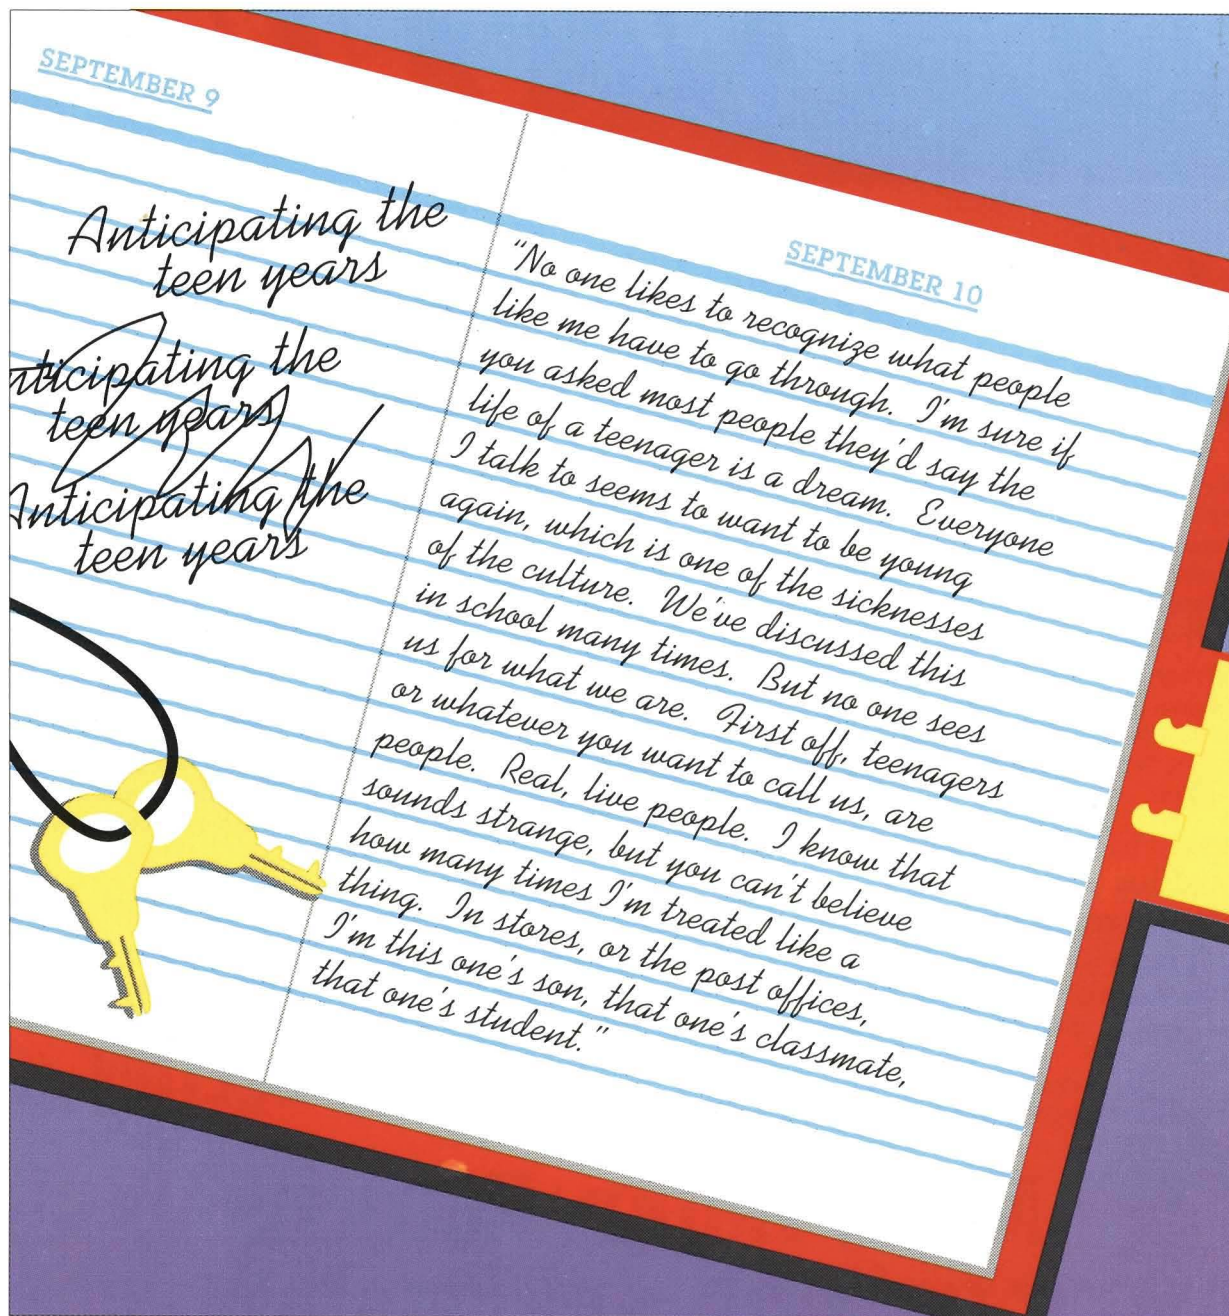 SEPTEMBER 9
Anticipating the
teen years
nticipating the
teen years
Anticipating the
teen years
SEPTEMBER 10
"No one likes to recognize what people
like me have to go through. I'm sure if
you asked most people they'd say the
life of a teenager is a dream. Everyone
I talk to seems to want to be young
again, which is one of the sicknesses
of the culture. We've discussed this
in school many times. But no one sees
us for what we are. First off, teenagers
or whatever you want to call us, are
people. Real, live people. I know that
sounds strange, but you can't believe
how many times I'm treated like a
thing. In stores, or the post offices,
I'm this one's son, that one's classmate,
that one's student."